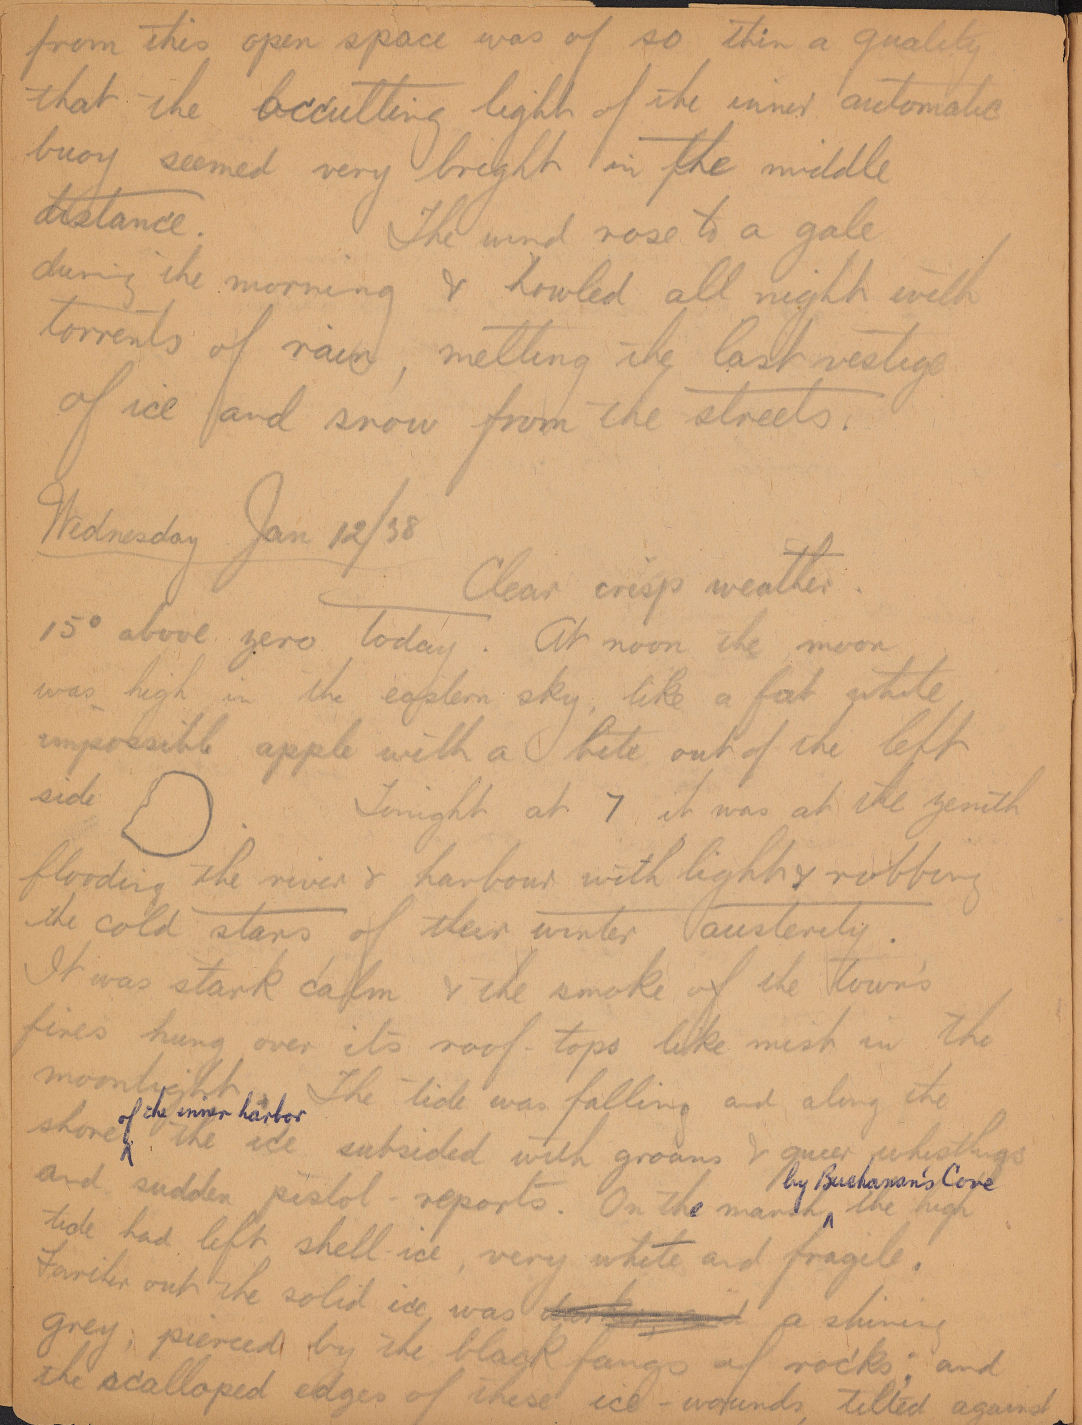 from this open space was of so thin a quality
that the occulting light of the inner automatic
buoy seemed very bright in the middle
distance. The wind rose to a gale
during the morning & howled all night with
torrents of rain, melting the last vestige
of ice and snow from the streets.
Wednesday Jan 12/38
Clear crisp weather.
15° above zero today. At noon the moon
was high in the eastern sky, like a fat white
impossible apple with a bite out of the left
side . Tonight at 7 it was at the zenith
flooding the river & harbour with light & robbing
the cold stars of their winter austerity.
It was stark calm & the smoke of the town's
fires hung over its roof-tops like mist in the
moonlight. The tide was falling and along the
of the inner harbor
shore the ice subsided with groans & queer whistlings
by Buchanan's Cove
and sudden pistol-reports. On the marsh, the high
tide had left shell-ice, very white and fragile.
Farther out the solid ice was a shining
grey, pierced by the black fangs of rocks; and
the scalloped edges of these ice-wounds, tilted against